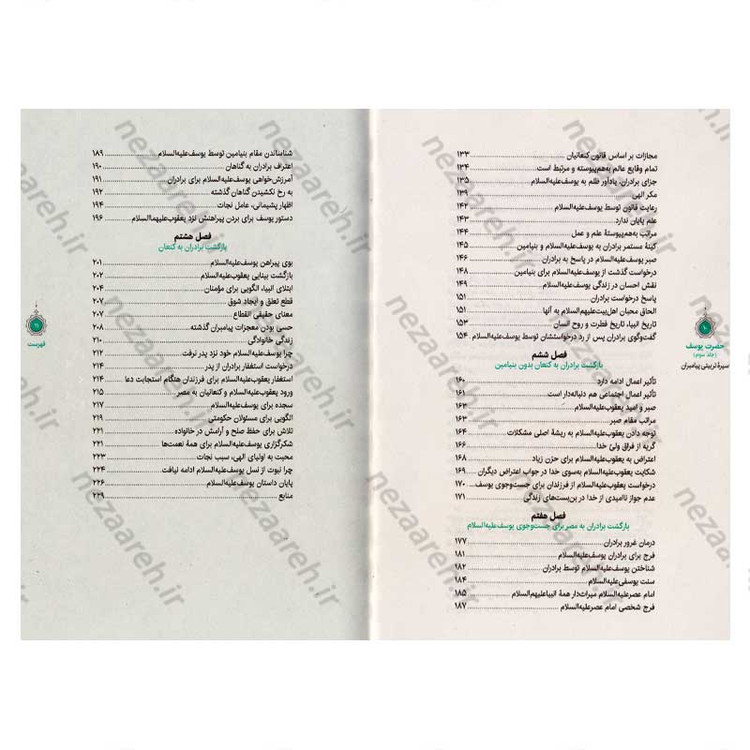 مجازات بر اساس قانون کنعانیان ۱۳۳
تمام وقایع عالم به‌هم‌پیوسته و مرتبط است ۱۳۴
جزای برادران، یادآور ظلم به یوسف‌علیه‌السلام ۱۳۵
مکر الهی ۱۳۹
رعایت قانون توسط یوسف‌علیه‌السلام ۱۴۲
علم پایان ندارد ۱۴۳
مراتب به‌هم‌پیوستهٔ علم و عمل ۱۴۴
کینهٔ مستمر برادران به یوسف‌علیه‌السلام و بنیامین ۱۴۵
صبر یوسف‌علیه‌السلام در پاسخ به برادران ۱۴۶
درخواست گذشت از یوسف‌علیه‌السلام برای بنیامین ۱۴۸
نقش احسان در زندگی یوسف‌علیه‌السلام ۱۴۹
پاسخ درخواست برادران ۱۵۱
الحاق محبان اهل‌بیت‌علیهم‌السلام به آنها ۱۵۱
تاریخ انبیا، تاریخ فطرت و روح انسان ۱۵۳
گفت‌وگوی برادران پس از رد درخواستشان توسط یوسف‌علیه‌السلام ۱۵۴
فصل ششم
بازگشت برادران به کنعان بدون بنیامین
تأثیر اعمال ادامه دارد ۱۶۰
تأثیر اعمال اجتماعی هم دنباله‌دار است ۱۶۱
صبر و امید یعقوب‌علیه‌السلام ۱۶۳
مراتب مقام صبر ۱۶۳
توجه دادن یعقوب‌علیه‌السلام به ریشهٔ اصلی مشکلات ۱۶۴
گریه از فراق ولیّ خدا ۱۶۶
اعتراض به یعقوب‌علیه‌السلام برای حزن زیاد ۱۶۸
شکایت یعقوب‌علیه‌السلام به‌سوی خدا در جواب اعتراض دیگران ۱۶۹
درخواست یعقوب‌علیه‌السلام از فرزندان برای جست‌وجوی یوسف ۱۷۰
عدم جواز ناامیدی از خدا در بن‌بست‌های زندگی ۱۷۱
فصل هفتم
بازگشت برادران به مصر برای جست‌وجوی یوسف‌علیه‌السلام
درمان غرور برادران ۱۷۷
فرج برای برادران یوسف‌علیه‌السلام ۱۸۱
شناختن یوسف‌علیه‌السلام توسط برادران ۱۸۲
سنت یوسفی‌علیه‌السلام ۱۸۴
امام عصرعلیه‌السلام میراث‌دار همهٔ انبیاعلیهم‌السلام ۱۸۵
فرج شخصی امام عصرعلیه‌السلام ۱۸۷
۱۰
حضرت یوسف
(جلد سوم)
سیرهٔ تربیتی پیامبران
شناساندن مقام بنیامین توسط یوسف‌علیه‌السلام ۱۸۹
اعتراف برادران به گناهان ۱۹۰
آمرزش‌خواهی یوسف‌علیه‌السلام برای برادران ۱۹۱
به رخ نکشیدن گناهان گذشته ۱۹۲
اظهار پشیمانی، عامل نجات ۱۹۴
دستور یوسف برای بردن پیراهنش نزد یعقوب‌علیهماالسلام ۱۹۶
فصل هشتم
بازگشت برادران به کنعان
بوی پیراهن یوسف‌علیه‌السلام ۲۰۱
بازگشت بینایی یعقوب‌علیه‌السلام ۲۰۲
ابتلای انبیا، الگویی برای مؤمنان ۲۰۴
قطع تعلق و ایجاد شوق ۲۰۷
معنای حقیقی انقطاع ۲۰۷
حسی بودن معجزات پیامبران گذشته ۲۰۸
زندگی خانوادگی ۲۱۰
چرا یوسف‌علیه‌السلام خود نزد پدر نرفت ۲۱۲
درخواست استغفار از پدر ۲۱۴
استغفار یعقوب‌علیه‌السلام برای فرزندان هنگام استجابت دعا ۲۱۴
ورود یعقوب‌علیه‌السلام و کنعانیان به مصر ۲۱۵
سجده برای یوسف‌علیه‌السلام ۲۱۷
الگویی برای مسئولان حکومتی ۲۱۹
تلاش برای حفظ صلح و آرامش در خانواده ۲۲۱
شکرگزاری یوسف‌علیه‌السلام برای همهٔ نعمت‌ها ۲۲۱
محبت به اولیای الهی، سبب نجات ۲۲۳
چرا نبوت از نسل یوسف‌علیه‌السلام ادامه نیافت ۲۲۴
پایان داستان یوسف‌علیه‌السلام ۲۲۶
منابع ۲۲۹
فهرست
nezaareh.ir